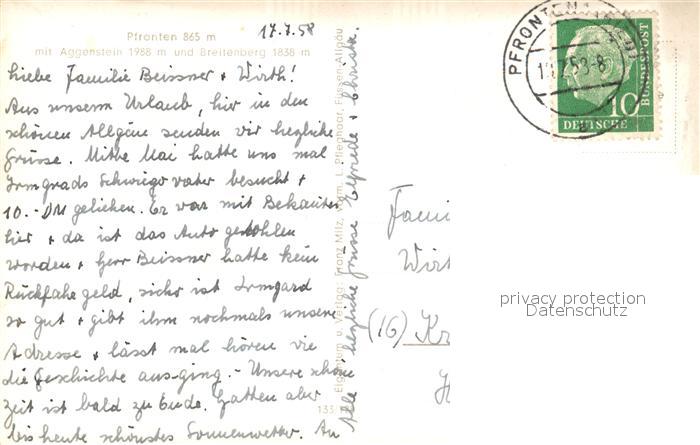 Pfronten 865 m
mit Aggenstein 1988 m und Breitenberg 1838 m
17.7.58
Liebe Familie Beissner + Wirth!
Aus unserm Urlaub, hier in den
schönen Allgäue senden wir herzliche
Grüsse. Mitte Mai hatte uns mal
Irmgrads Schwiegervater besucht +
10.- DM geliehen. Er war mit Bekannten
hier + da ist das Auto gestohlen
worden + Herr Beissner hatte kein
Rückfahrgeld, sicher ist Irmgard
so gut + gibt ihm nochmals unsere
Adresse + lässt mal hören wie
die Geschichte ausging. - Unsere schöne
Zeit ist bald zu Ende. Hatten aber
bis heute schönstes Sonnenwetter. An
Alle herzliche Grüsse Elfriede + Christa.
Eigentum u. Verlag: Franz Milz, vorm. L. Pfleghaar, Füssen-Allgäu
133
PFRONTEN
58-8
10
DEUTSCHE
BUNDESPOST
Famil
Wirt
(16) Kr
privacy protection
Datenschutz